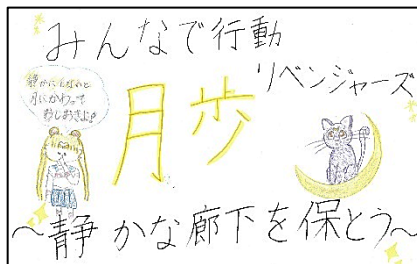 みんなで行動
リベンジャーズ
静かにしないと
月にかわって
おしおきよ!
月歩
～静かな廊下を保とう～